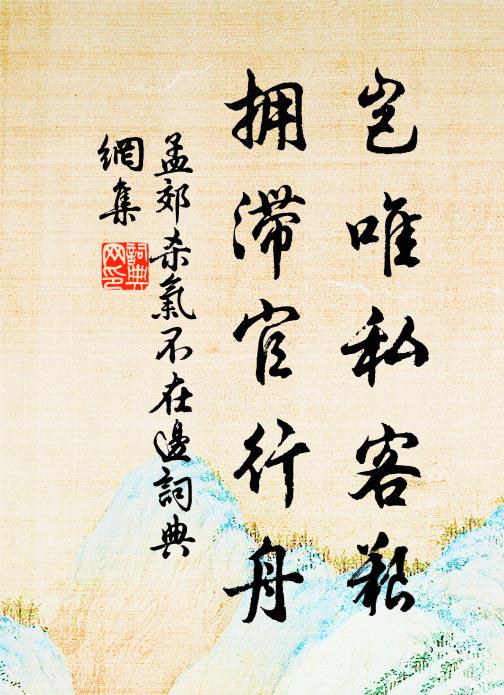 岂唯私客艰
拥滞官行舟
孟郊杀氣不在邊詞典
網集
詞典
网印